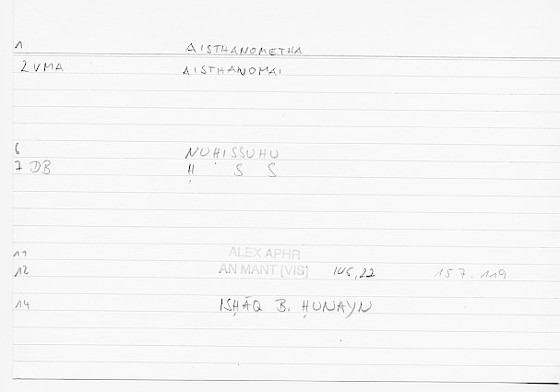 1 AISTHANOMETHA
2 VMA AISTHANOMAI
6 NUḤISSUHU
7 DB Ḥ S S
11 ALEX APHR
12 AN MANT (VIS) 145,22 157.119
14 ISḤĀQ B. ḤUNAYN